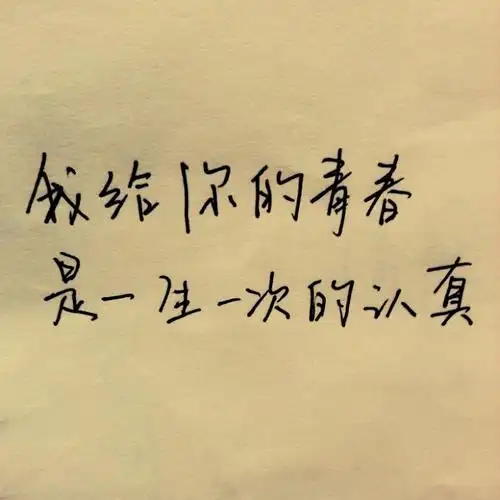 我给你的青春
是一生一次的认真